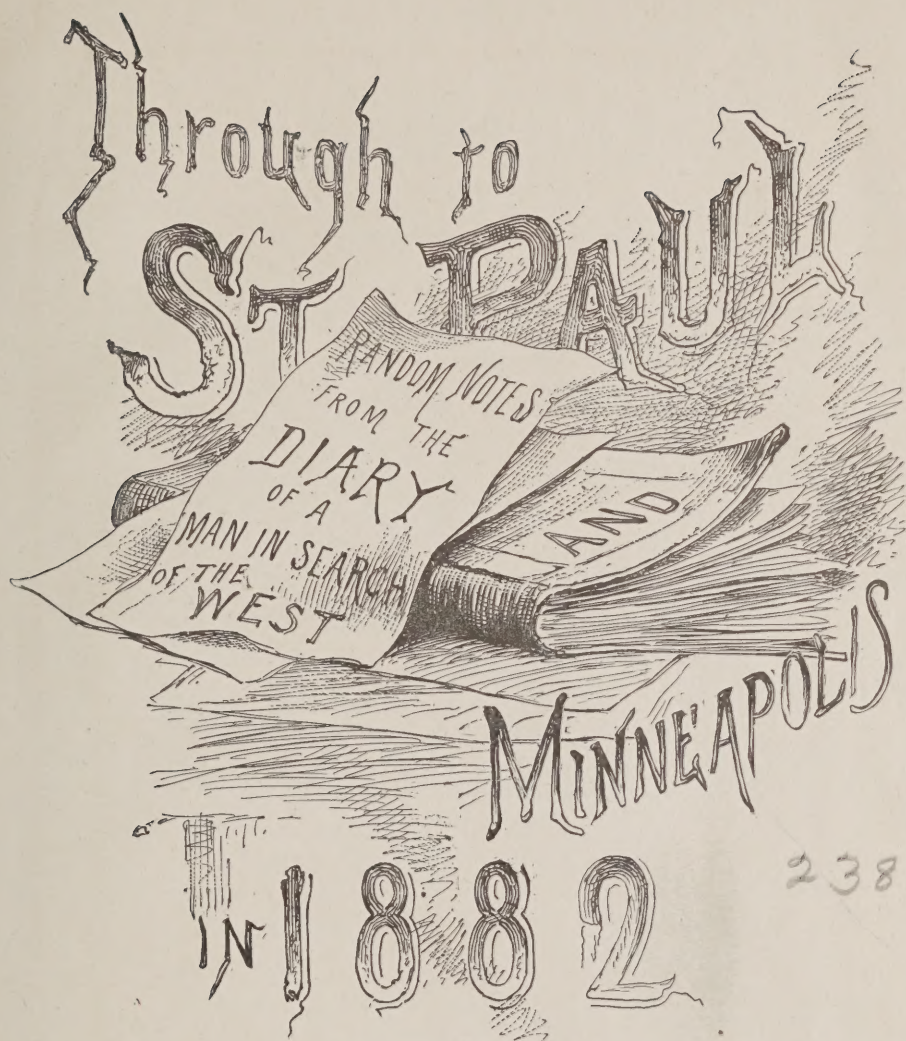 Through to
ST. PAUL
RANDOM NOTES
FROM THE
DIARY
OF A
MAN IN SEARCH
OF THE
WEST
AND
MINNEAPOLIS
IN 1882
238